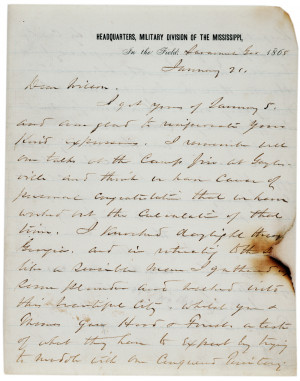 HEADQUARTERS, MILITARY DIVISION OF THE MISSISSIPPI,
In the Field, Savannah Geo 1865
January 21.
Dear Wilson.
I got yours of January 5.
and am glad to reciprocate your
kind expressions. I remember well
our talks at the Camp fire at Gayles-
ville and think we have Cause of
personal congratulation that we have
worked out the Calculations of that
time. I Knocked daylight through
Georgia, and in
like a sensible man I gathered
some plunder and walked into
this beautiful City. whilst you &
Thomas gave Hood & Forrest, a taste
of what they have to expect by trying
to meddle with our Conquered Territory